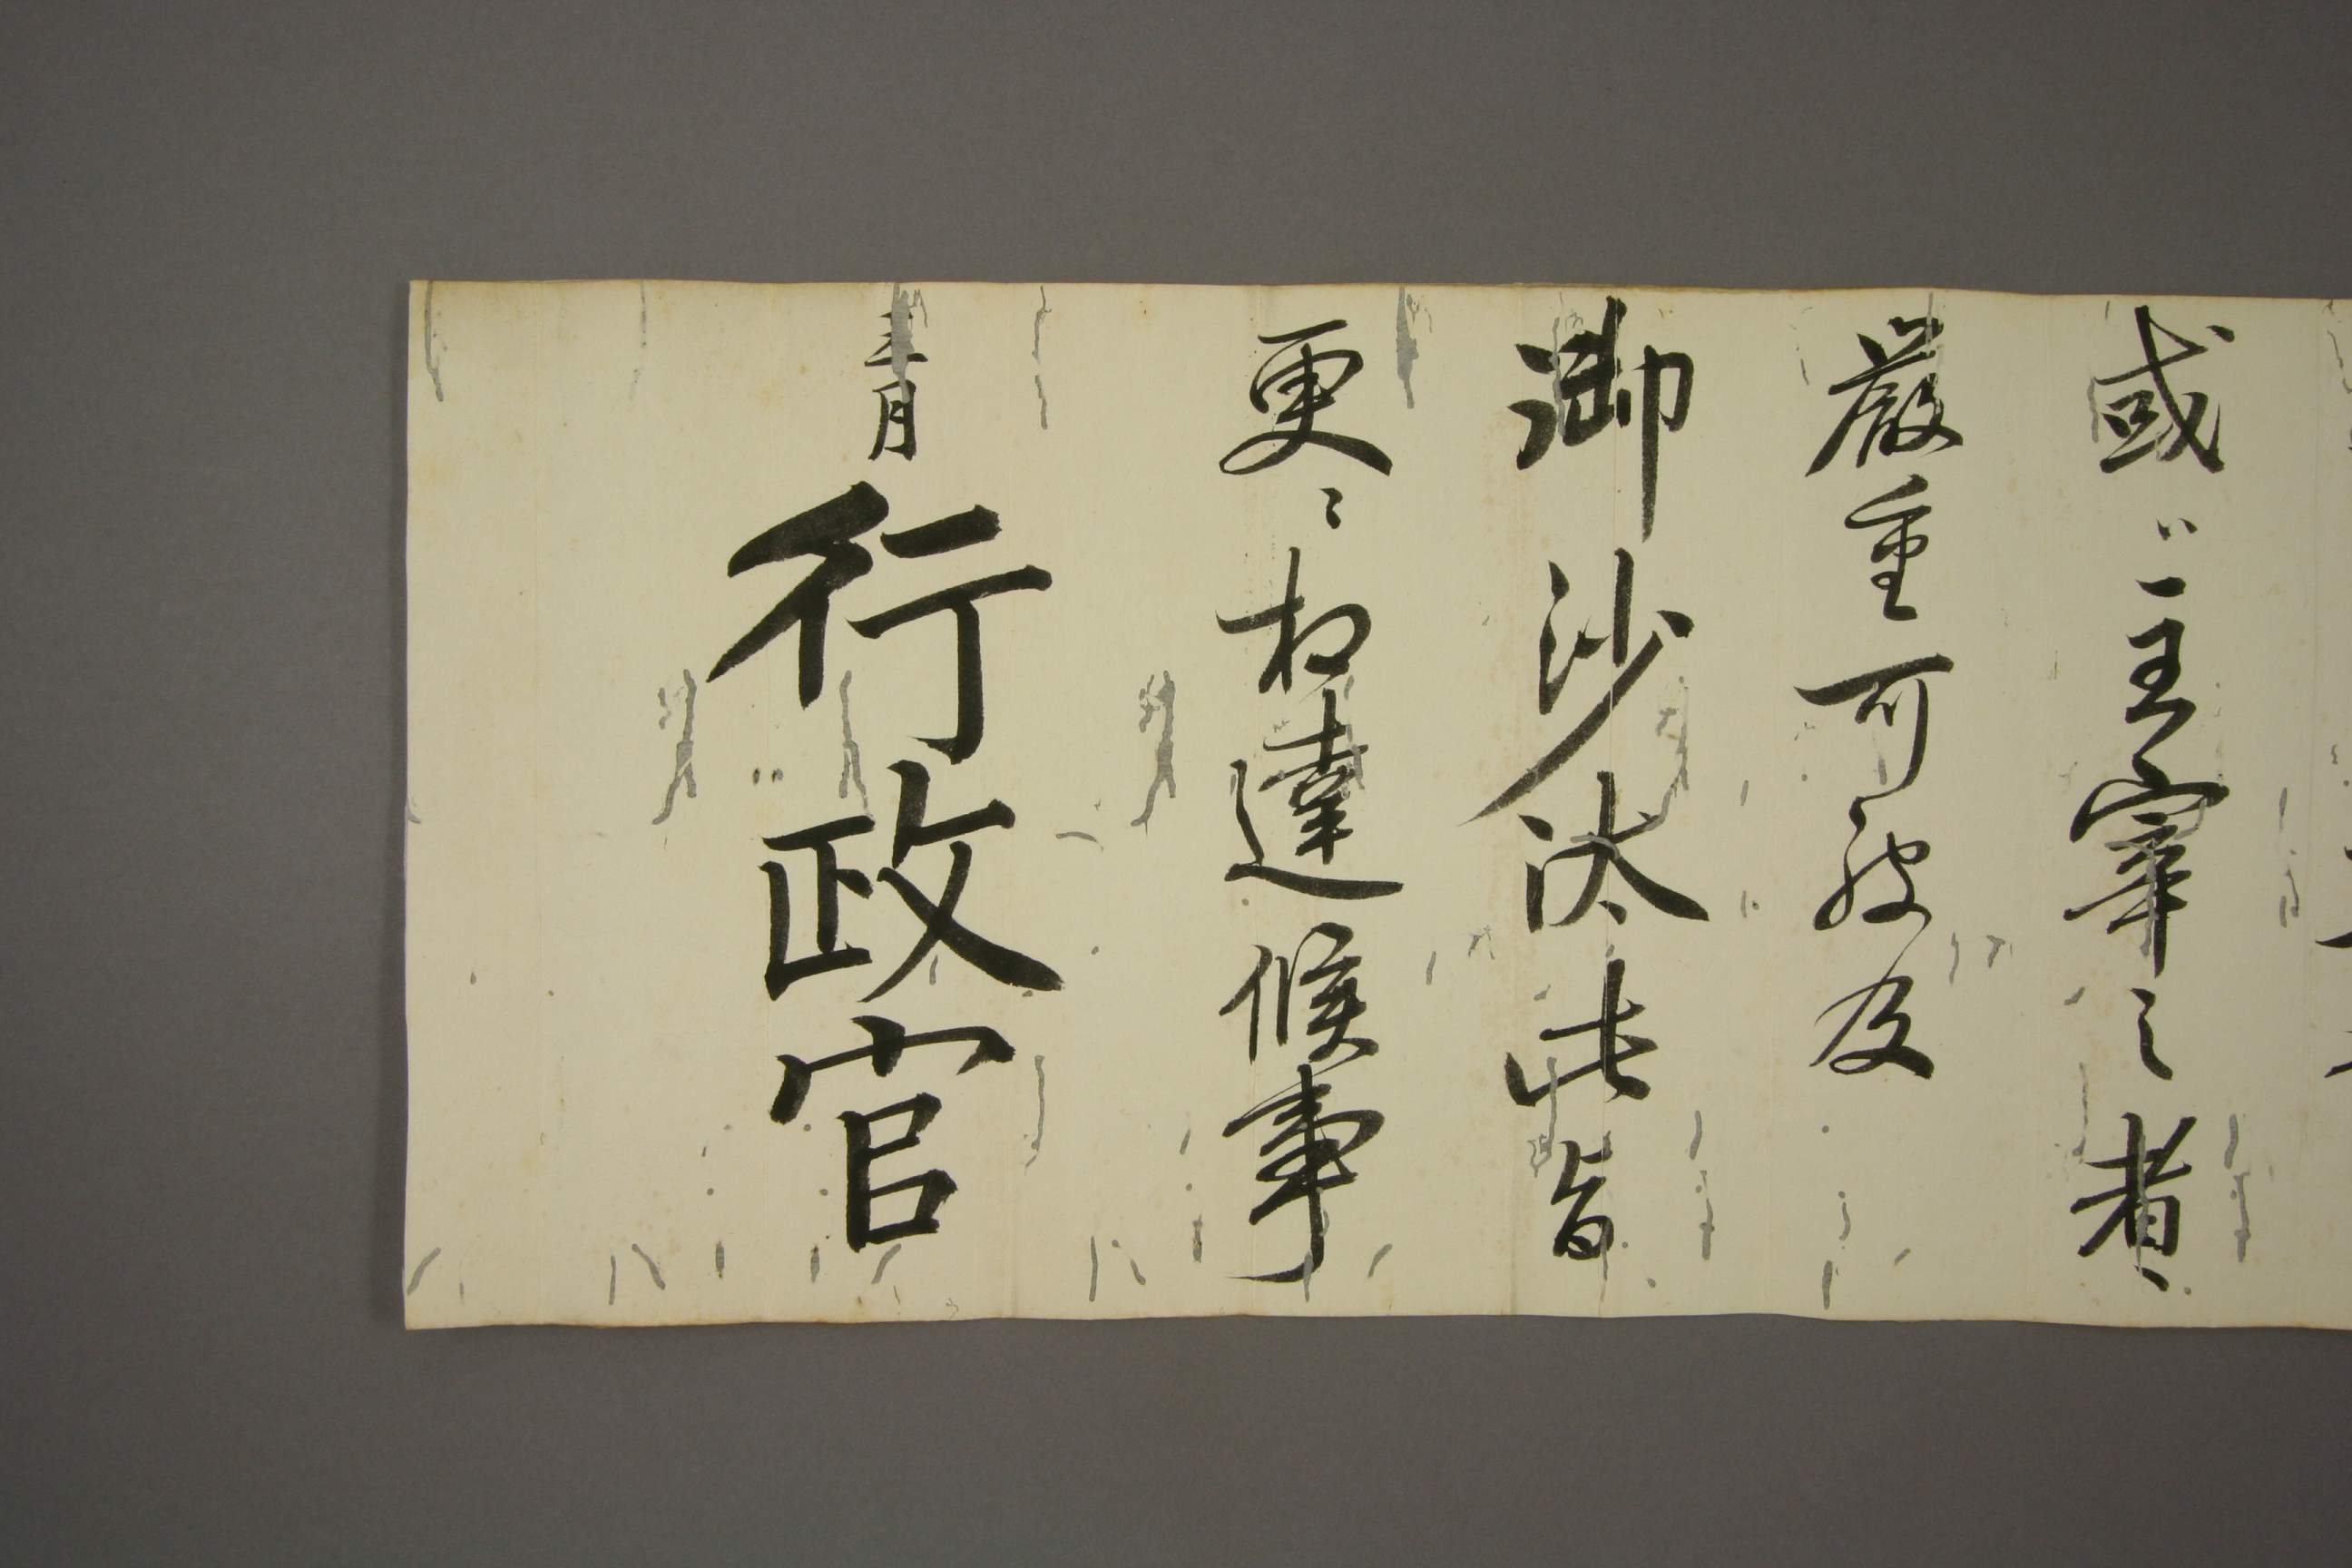 或ハ一主宰之者ハ
嚴重可被及
御沙汰此旨
更ニ相達候事
月
行政官